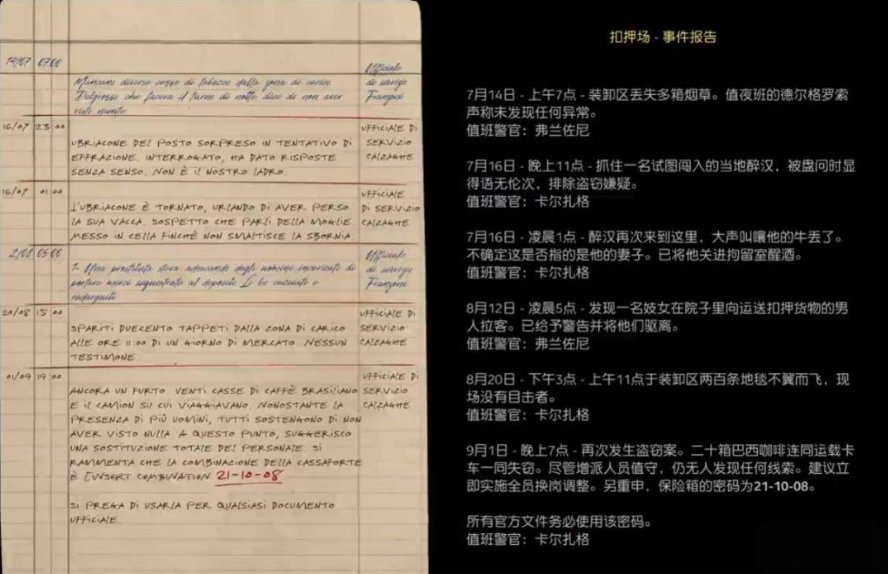 14/07 07:00
Mancano diverse casse di tabacco dalla zona di carico
Delgrosso che faceva il turno di notte, dice di non aver
visto niente
Ufficiale
di servizio
Franzoni
16/07 23:00
UBRIACONE DEL POSTO SORPRESO IN TENTATIVO DI
EFFRAZIONE. INTERROGATO, HA DATO RISPOSTE
SENZA SENSO. NON È IL NOSTRO LADRO.
UFFICIALE DI
SERVIZIO
CALZAGHE
16/07 01:00
L'UBRIACONE È TORNATO, URLANDO DI AVER PERSO
LA SUA VACCA. SOSPETTO CHE PARLI DELLA MOGLIE
MESSO IN CELLA FINCHÉ NON SMALTISCE LA SBORNIA.
UFFICIALE
DI SERVIZIO
CALZAGHE
2/08 05:00
Una prostituta stava adescando degli uomini incaricati di
portare merci al deposito Li ho cacciati e
redarguiti
Ufficiale
di servizio
Franzoni
20/08 15:00
SPARITI DUECENTO TAPPETI DALLA ZONA DI CARICO
ALLE ORE 11:00 DI UN GIORNO DI MERCATO. NESSUN
TESTIMONE
UFFICIALE DI
SERVIZIO
CALZAGHE
01/09 19:00
ANCORA UN FURTO. VENTI CASSE DI CAFFÈ BRASILIANO
E IL CAMION SU CUI VIAGGIAVANO. NONOSTANTE LA
PRESENZA DI PIÙ UOMINI, TUTTI SOSTENGONO DI NON
AVER VISTO NULLA. A QUESTO PUNTO, SUGGERISCO
UNA SOSTITUZIONE TOTALE DEL PERSONALE. SI
RAMMENTA CHE LA COMBINAZIONE DELLA CASSAFORTE
È [INSERT COMBINATION 21-10-08
SI PREGA DI USARLA PER QUALSIASI DOCUMENTO
UFFICIALE.
UFFICIALE DI
SERVIZIO
CALZAGHE
扣押场 - 事件报告
7月14日 - 上午7点 - 装卸区丢失多箱烟草。值夜班的德尔格罗索
声称未发现任何异常。
值班警官：弗兰佐尼
7月16日 - 晚上11点 - 抓住一名试图闯入的当地醉汉，被盘问时显
得语无伦次，排除盗窃嫌疑。
值班警官：卡尔扎格
7月16日 - 凌晨1点 - 醉汉再次来到这里，大声叫嚷他的牛丢了。
不确定这是否指的是他的妻子。已将他关进拘留室醒酒。
值班警官：卡尔扎格
8月12日 - 凌晨5点 - 发现一名妓女在院子里向运送扣押货物的男
人拉客。已给予警告并将他们驱离。
值班警官：弗兰佐尼
8月20日 - 下午3点 - 上午11点于装卸区两百条地毯不翼而飞，现
场没有目击者。
值班警官：卡尔扎格
9月1日 - 晚上7点 - 再次发生盗窃案。二十箱巴西咖啡连同运载卡
车一同失窃。尽管增派人员值守，仍无人发现任何线索。建议立
即实施全员换岗调整。另重申，保险箱的密码为21-10-08。
所有官方文件务必使用该密码。
值班警官：卡尔扎格